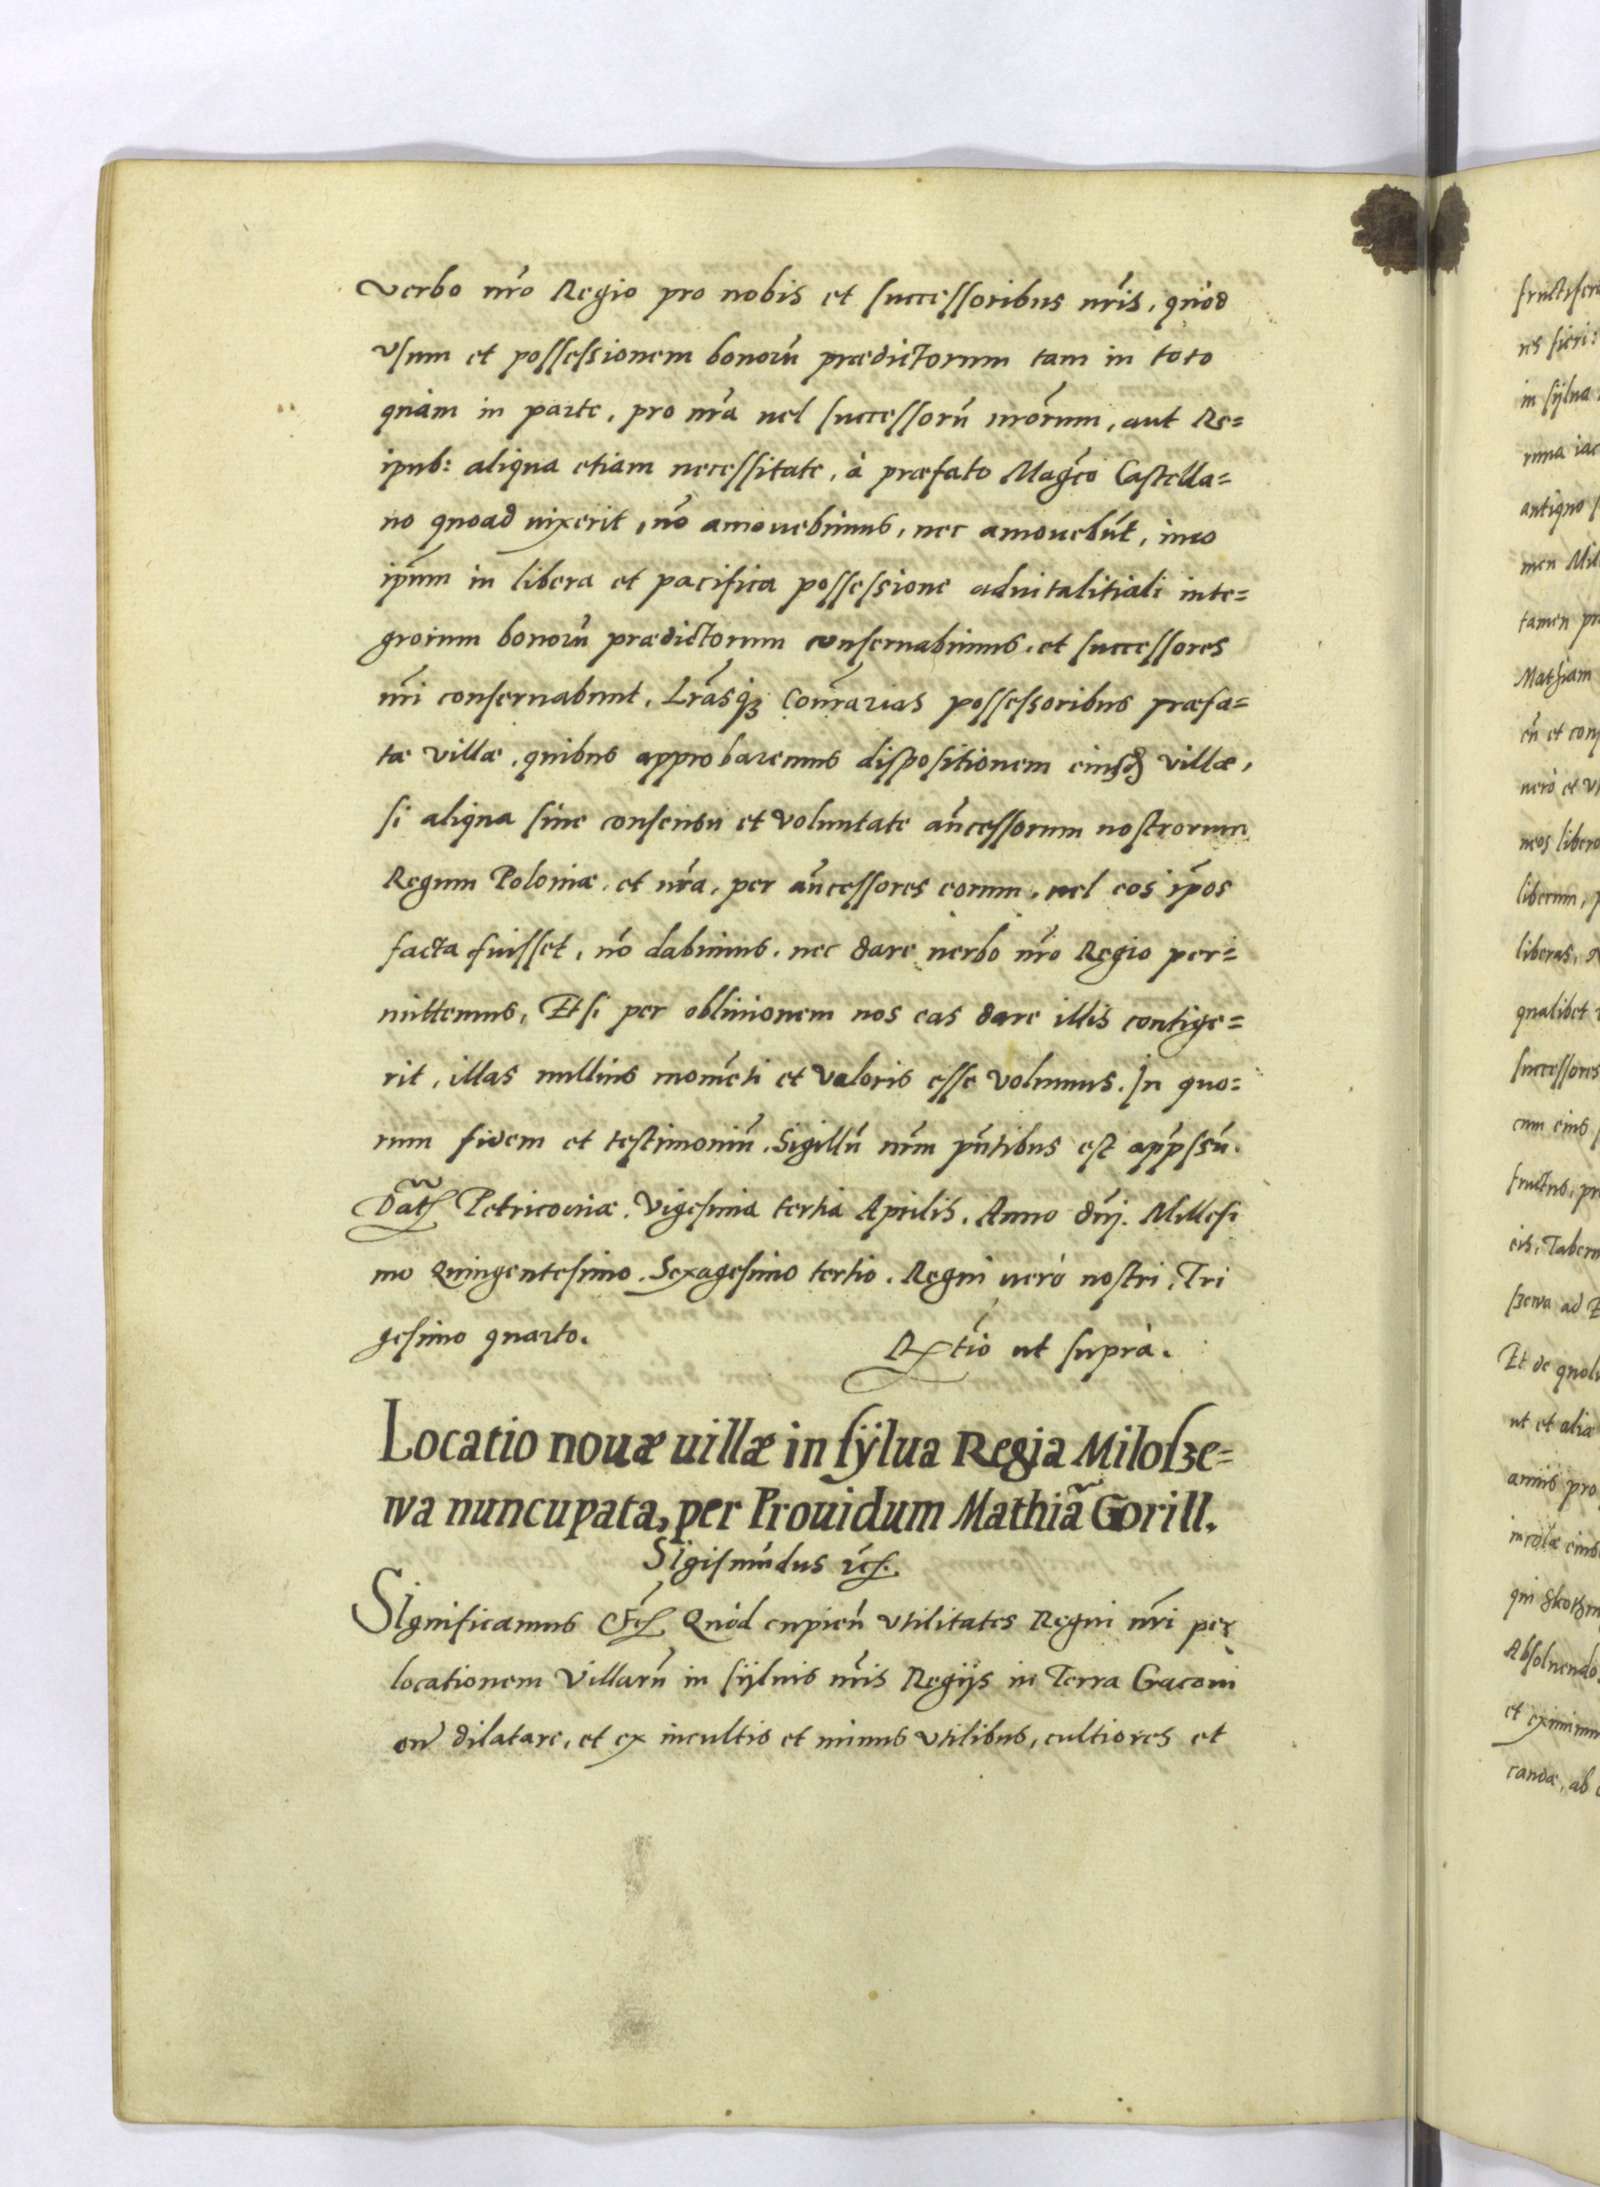 verbo nr̃o Regio pro nobis et successoribus nr̃is, quòd
vsum et possessionem bonorũ prædictorum tam in toto
quàm in parte, pro nr̃a uel successorũ nrõrum, aut Re=
ipub: aliqua etiam necessitate, à præfato Mag̃co Castella=
no quoad uixerit, nõ amouebimus, nec amouebũt, imo
ip̃um in libera et pacifica possessione aduitalitiali inte=
grorum bonorũ prædictorum conseruabimus, et successores
nr̃i conseruabunt. Lr̃asq3 Cont̃rarias possessoribus præfa=
tæ villæ, quibus approbaremus dispositionem eiusđ villæ,
si aliqua sine consensu et voluntate añcessorum nostrorum
Regum Poloniæ, et nr̃a, per añcessores eorum, uel eos ip̃os
facta fuisset, nõ dabimus, nec dare uerbo nr̃o Regio per=
mittemus, Et si per obliuionem nos eas dare illis contige=
rit, illas nullius momẽti et valoris esse volumus. In quo=
rum fidem et testimoniũ. Sigillũ nr̃m pñtibus est app̃ssũ.
Dat̃ Petricouiæ. Vigesima tertia Aprilis. Anno dñj. Millesi
mo Quingentesimo. Sexagesimo tertio. Regni uerò nostri. Tri
gesimo quarto.
Rx̃tio ut suprà.
Locatio nouæ uillæ in sÿlua Regia Milosze=
wa nuncupata, per Prouidum Mathiã Gorill.
Sigismũdus rc̃.
Significamus &c̃ Quòd cupieñ vtilitates Regni nr̃i per
locationem Villarũ in sÿluis nr̃is Regijs in Terra Cracoui
eñ dilatare, et ex incultis et minus vtilibus, cultiores et
fructifer
res fieri:
in sÿlua
antiquo
tamen
Mathiam
uerò et
liberum,
liberas,
qualibet
successores
cum eius
fructus,
szewa ad
Et de
ut et aliæ
annis pro
incolæ
qui
Absoluendo
et